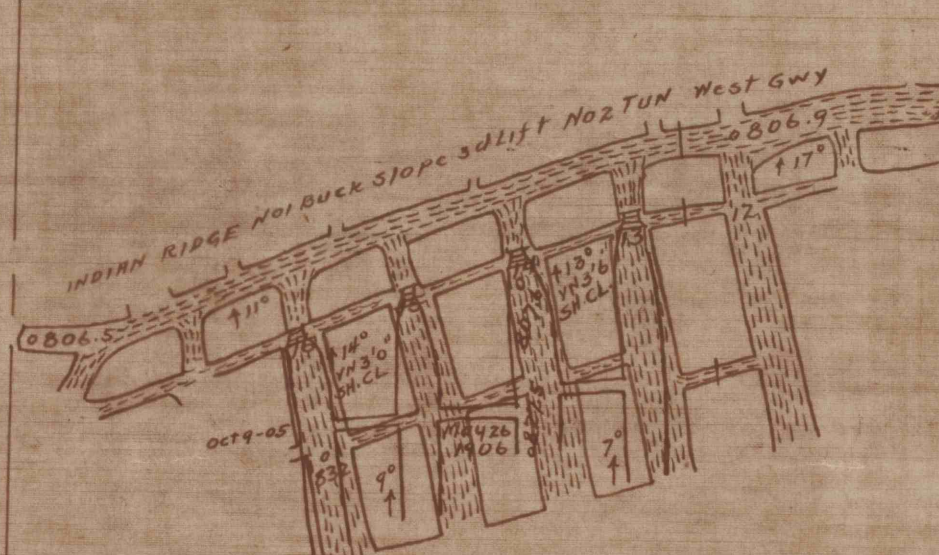 INDIAN RIDGE No1 BUCK Slope 3d Lift No2 TUN West Gwy
0806.9
↑ 17°
12
13
↑ 13°
VN 3'6
SH. CL.
↑ 11°
0806.5
↑ 14°
VN 3'0"
SH. CL.
Oct 9-05
May 26
1906
832
9°
7°